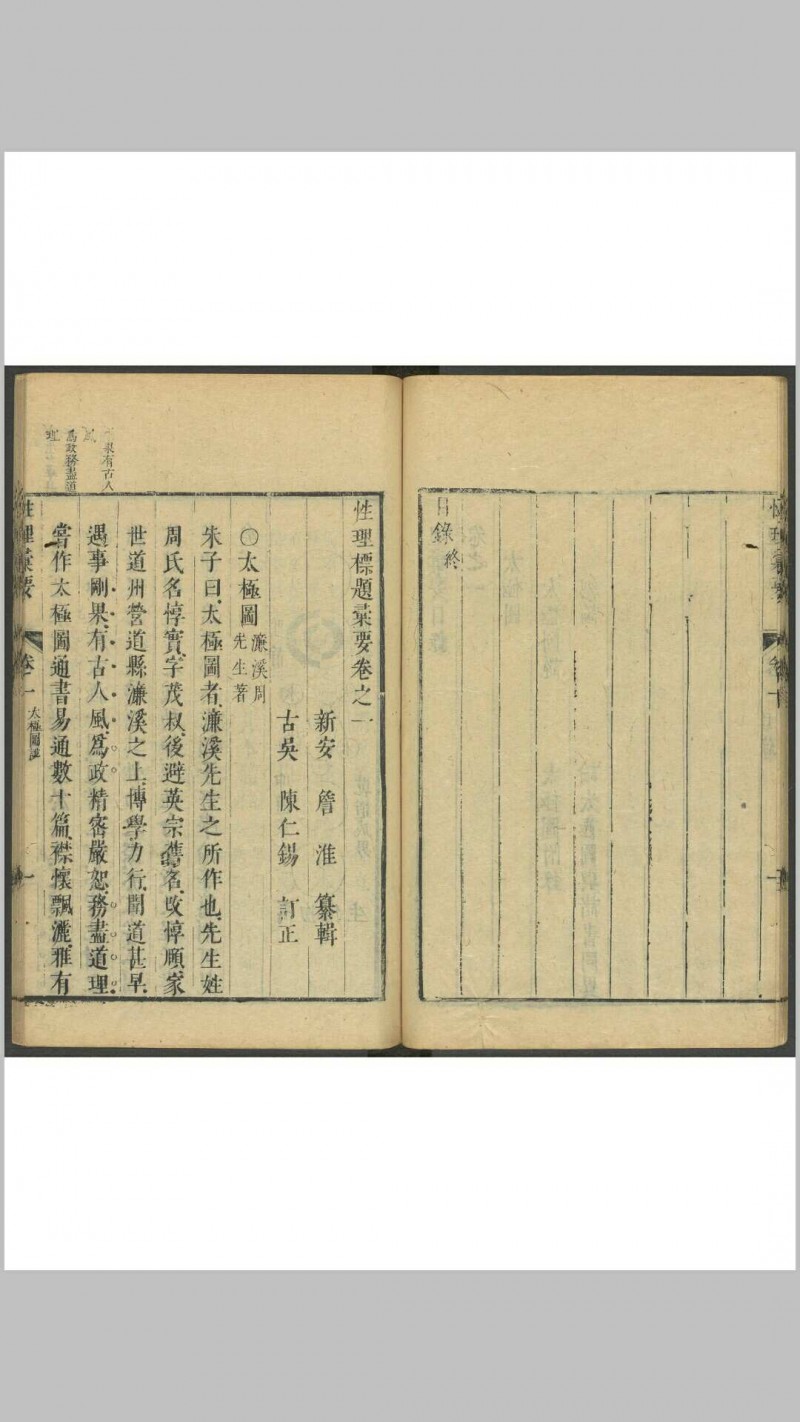 目錄終
性理標題彚要卷之一
新安 詹淮 纂輯
古吳 陳仁錫 訂正
○太極圖 濂溪周先生著
朱子曰太極圖者濂溪先生之所作也先生姓
周氏名惇實字茂叔後避英宗舊名改惇頤家
世道州營道縣濂溪之上博學力行聞道甚早
遇事剛果有古人風爲政精密嚴恕務盡道理
嘗作太極圖通書易通數十篇襟懷飄灑雅有
果有古人
爲政務盡道
理
性理彚要 卷一 太極圖 一